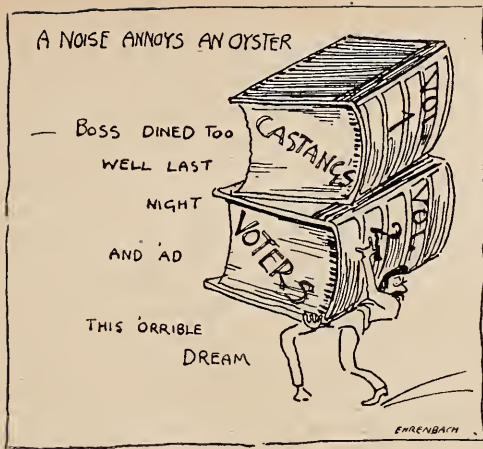 A NOISE ANNOYS AN OYSTER
— BOSS DINED TOO
WELL LAST
NIGHT
AND 'AD
THIS 'ORRIBLE
DREAM
CASTANGS
VOTERS
EHRENBACH